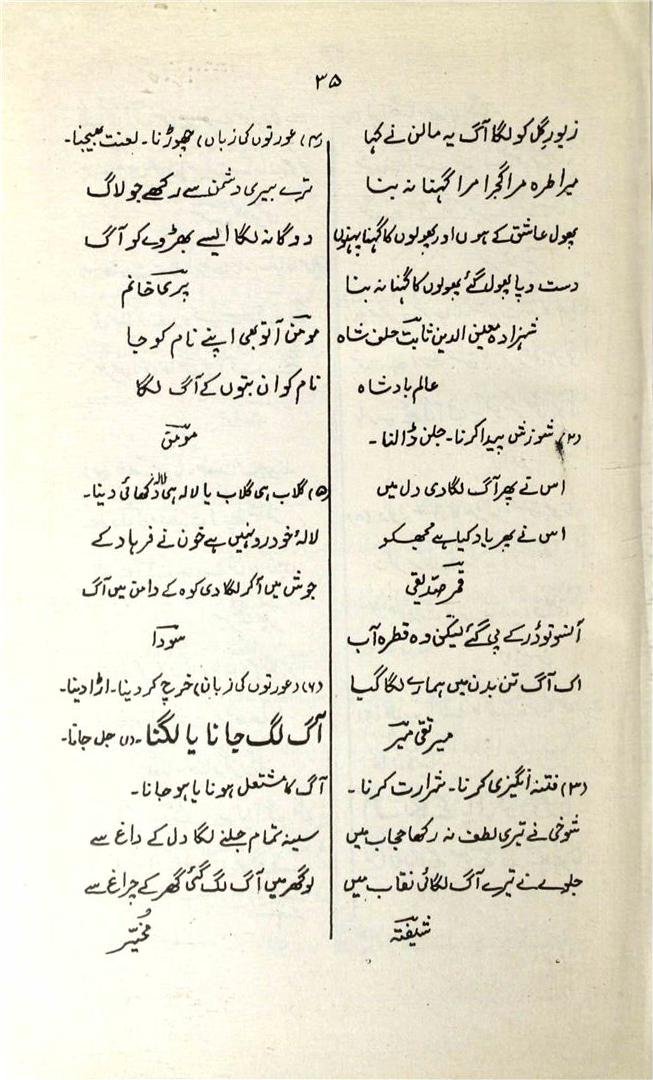 ۳۵
زیورِ گل کو لگا آگ یہ مالن نے کہا
میرا طرہ مرا گجرا مرا گہنا نہ بنا
پھول عاشق کے ہوں اور پھولوں کا گہنا پہنوں
دست و پا پھول گئے پھولوں کا گہنا نہ بنا
شہزادہ معین الدین ثابت خلف شاہ
عالم بادشاہ
(۲) شوزش پیدا کرنا۔ جلن ڈالنا۔
اس نے پھر آگ لگا دی دل میں
اس نے پھر یاد کیا ہے مجھکو
قمر صدیقی
آنسو تو ڈر کے پی گئے لیکن وہ قطرہ آب
اک آگ تن بدن میں ہمارے لگا گیا
میر تقی میر
(۳) فتنہ انگیزی کرنا۔ شرارت کرنا۔
شوخی نے تیری لطف نہ رکھا حجاب میں
جلوے نے تیرے آگ لگائی نقاب میں
شیفتہ
(۴) (عورتوں کی زبان) چھوڑنا۔ لعنت بھیجنا۔
ترے بیری دشمن سے رکھے جو لاگ
دوگانہ لگا ایسے بھڑوے کو آگ
پری خانم
مومن آ تو بھی اپنے نام کو جا
نام کو ان بتوں کے آگ لگا
مومن
(۵) گلاب ہی گلاب یا لالہ ہی لالہ دکھائی دینا۔
لالۂ خودرو نہیں ہے خون نے فرہاد کے
جوش میں آ کر لگا دی کوہ کے دامن میں آگ
سودا
(۶) (عورتوں کی زبان) خرچ کر دینا۔ اڑا دینا۔
آگ لگ جانا یا لگنا۔ (۱) جل جانا۔
آگ کا مشتعل ہونا یا ہو جانا۔
سینہ تمام جلنے لگا دل کے داغ سے
لو گھر میں آگ لگ گئی گھر کے چراغ سے